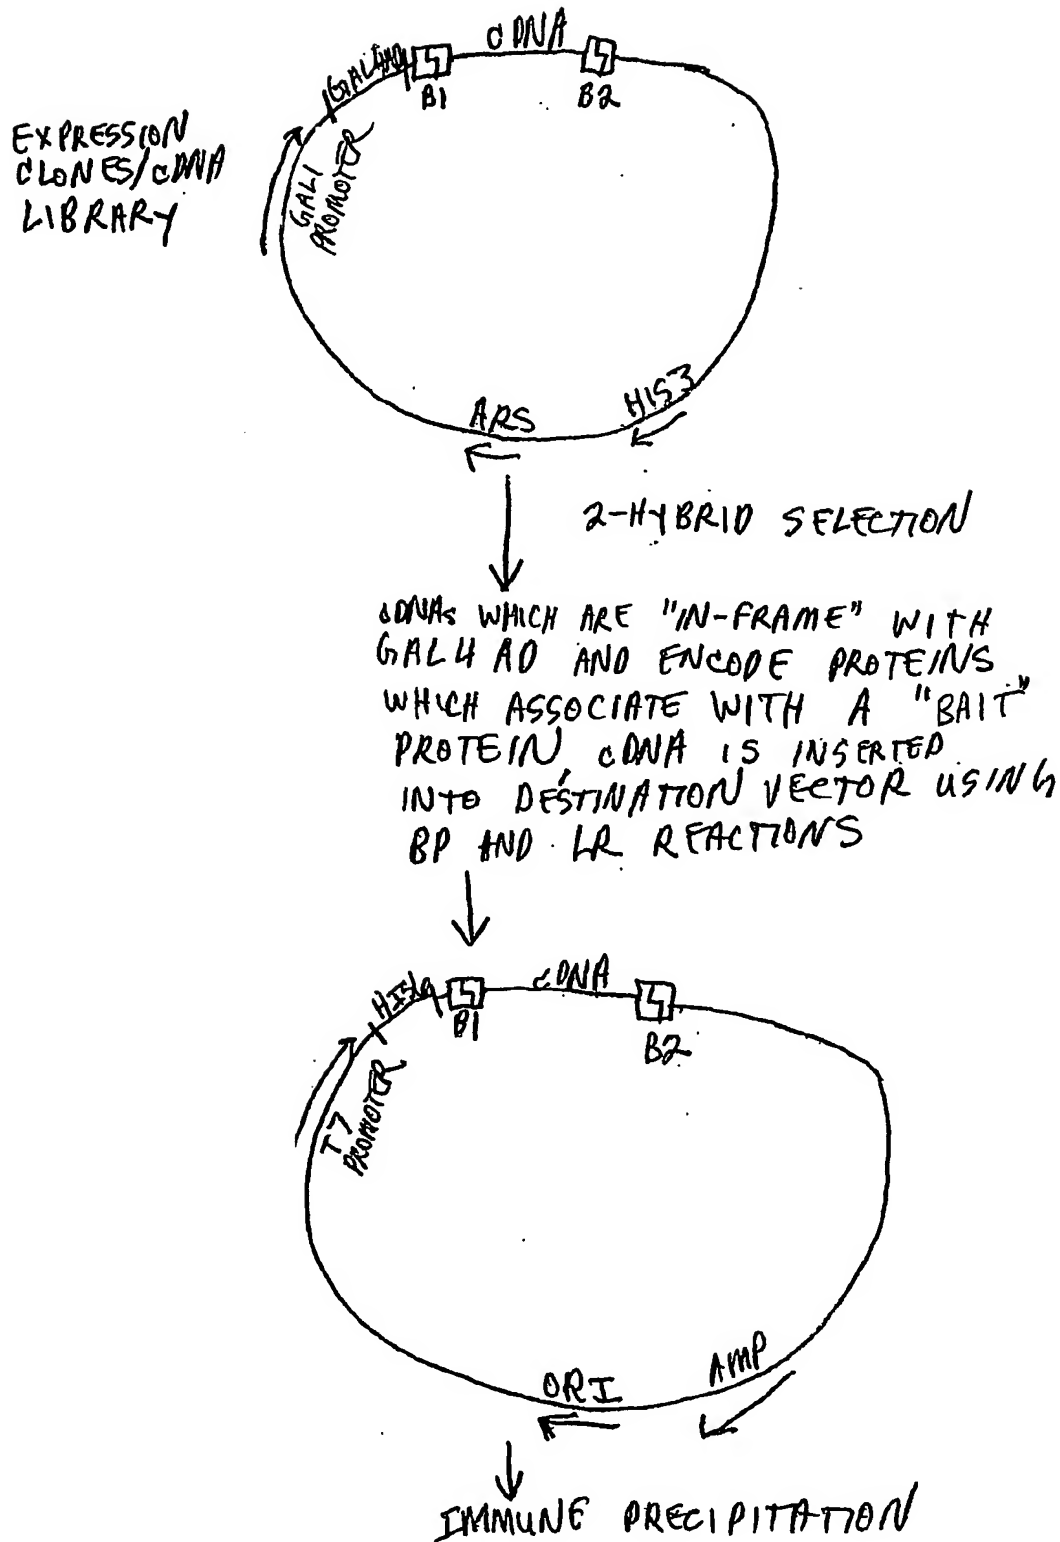 cDNA
GAL4AD
B1
B2
EXPRESSION
CLONES/cDNA
LIBRARY
GAL1
PROMOTER
ARS
HIS3
2-HYBRID SELECTION
cDNAs WHICH ARE "IN-FRAME" WITH
GAL4 AD AND ENCODE PROTEINS
WHICH ASSOCIATE WITH A "BAIT"
PROTEIN, cDNA IS INSERTED
INTO DESTINATION VECTOR USING
BP AND LR REACTIONS
cDNA
B1
B2
T7
PROMOTER
ORI
AMP
IMMUNE PRECIPITATION